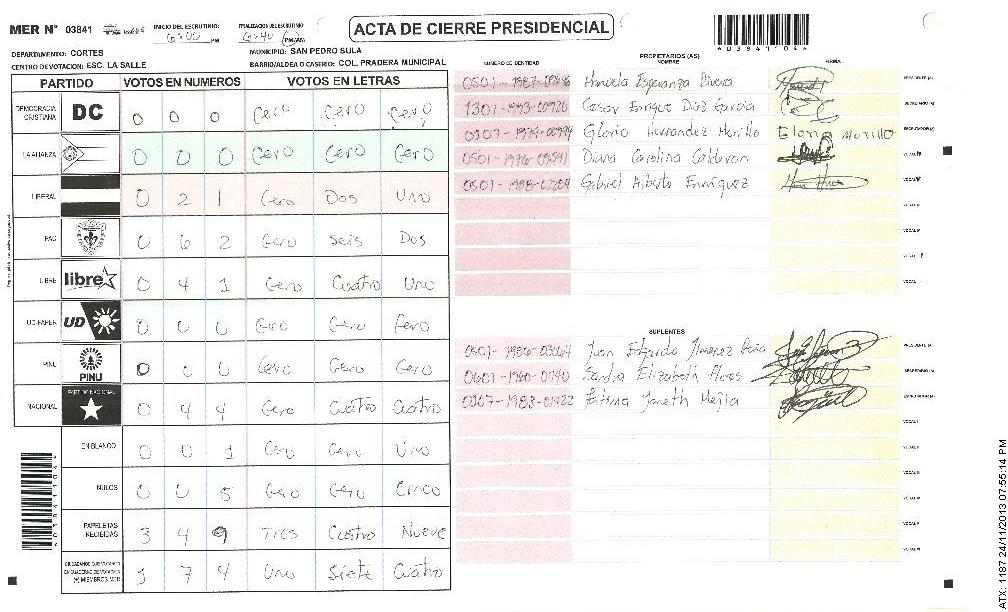 MER N° 03841 INICIO DEL ESCRUTINIO: 6:00 PM FINALIZACION DEL ESCRUTINIO 6:40 PM/AM
ACTA DE CIERRE PRESIDENCIAL
4038411044
DEPARTAMENTO: CORTES MUNICIPIO: SAN PEDRO SULA
CENTRO DE VOTACION: ESC. LA SALLE BARRIO/ALDEA O CASERIO: COL. PRADERA MUNICIPAL
PARTIDO VOTOS EN NUMEROS VOTOS EN LETRAS
DEMOCRACIA CRISTIANA DC 0 0 0 Cero Cero Cero
LA ALIANZA 0 0 0 Cero Cero Cero
LIBERAL 0 2 1 Cero Dos Uno
PAC 0 6 2 Cero Seis Dos
LIBRE libre 0 4 1 Cero Cuatro Uno
UD-FAPER UD 0 0 0 Cero Cero Cero
PINU PINU 0 0 0 Cero Cero Cero
NACIONAL PARTIDO NACIONAL 0 4 4 Cero Cuatro Cuatro
EN BLANCO 0 0 1 Cero Cero Uno
NULOS 0 0 5 Cero Cero Cinco
PAPELETAS RECIBIDAS 3 4 9 Tres Cuatro Nueve
CIUDADANOS QUE VOTARON EN CUADERNO DE VOTACION (+) MIEMBROS MER 1 7 4 Uno Siete Cuatro
PROPIETARIOS (AS)
NUMERO DE IDENTIDAD NOMBRE FIRMA
Esperanza Rivera PRESIDENTE (A)
1301-1993-00926 Cesar Enrique Diaz Garcia SECRETARIO (A)
Gloria Hernandez Morillo Gloria Morillo ESCRUTADOR (A)
0501-1976-09591 Diana Carolina Calderon VOCAL I
Gabriel Alberto Enriquez VOCAL II
VOCAL
VOCAL
VOCAL
VOCAL
SUPLENTES
Juan Edgardo Jimenez Peña PRESIDENTE (A)
Sandra Elizabeth Flores SECRETARIO (A)
Fatima Janeth Mejia ESCRUTADOR (A)
VOCAL I
VOCAL II
VOCAL
VOCAL
VOCAL
VOCAL
ATX: 1187 24/11/2013 07:55:14 PM